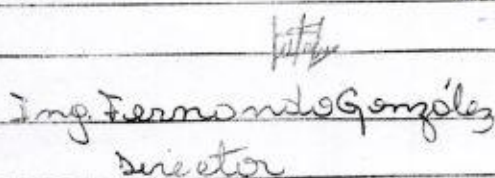 Ing. Fernando González
Director